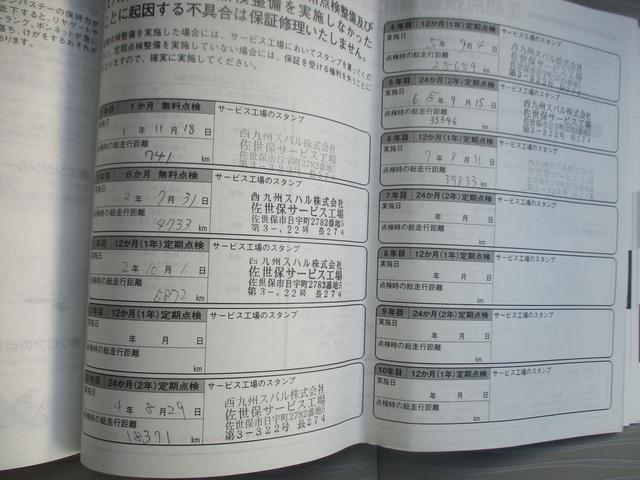 に起因する不具合は保証修理いたしません。
点検整備を実施した場合には、サービス工場においてスタンプを
定期点検整備を実施していない場合には、保証を受ける権利を失うことに
なりますので、確実に実施してください。
1か月 無料点検
サービス工場のスタンプ
実施日
1年 11月 18日
点検時の総走行距離
741 km
西九州スバル株式会社
佐世保サービス工場
佐世保市日宇町2782番地5
6か月 無料点検
サービス工場のスタンプ
実施日
2年 7月 31日
点検時の総走行距離
4733 km
西九州スバル株式会社
佐世保サービス工場
佐世保市日宇町2782番地5
第3-,22号 長274
12か月(1年)定期点検
サービス工場のスタンプ
実施日
2年 10月 1日
点検時の総走行距離
5872 km
西九州スバル株式会社
佐世保サービス工場
佐世保市日宇町2782番地5
第3-,22号 長274
12か月(1年)定期点検
サービス工場のスタンプ
実施日
年 月 日
点検時の総走行距離
km
24か月(2年)定期点検
サービス工場のスタンプ
実施日
4年 8月 29日
点検時の総走行距離
18371 km
西九州スバル株式会社
佐世保サービス工場
佐世保市日宇町2782番地5
第3-322号 長274
4年目 12か月(1年)定期点検
実施日
5年 9月 4日
点検時の総走行距離
25659 km
西九州スバル株式会社
佐世保サービス工場
佐世保市日宇町2782番地5
5年目 24か月(2年)定期点検
サービス工場のスタンプ
実施日
点検時の総走行距離
33346 km
西九州スバル株式会社
佐世保サービス工場
佐世保市日宇町2782番地5
第3-322号 長274
6年目 12か月(1年)定期点検
サービス工場のスタンプ
実施日
7年 8月 31日
点検時の総走行距離
39853 km
西九州スバル株式会社
佐世保サービス工場
佐世保市日宇町2782番地5
7年目 24か月(2年)定期点検
サービス工場のスタンプ
実施日
年 月 日
点検時の総走行距離
km
8年目 12か月(1年)定期点検
サービス工場のスタンプ
実施日
年 月 日
点検時の総走行距離
km
9年目 24か月(2年)定期点検
サービス工場のスタンプ
実施日
年 月 日
点検時の総走行距離
km
10年目 12か月(1年)定期点検
サービス工場のスタンプ
実施日
年 月 日
点検時の総走行距離
km